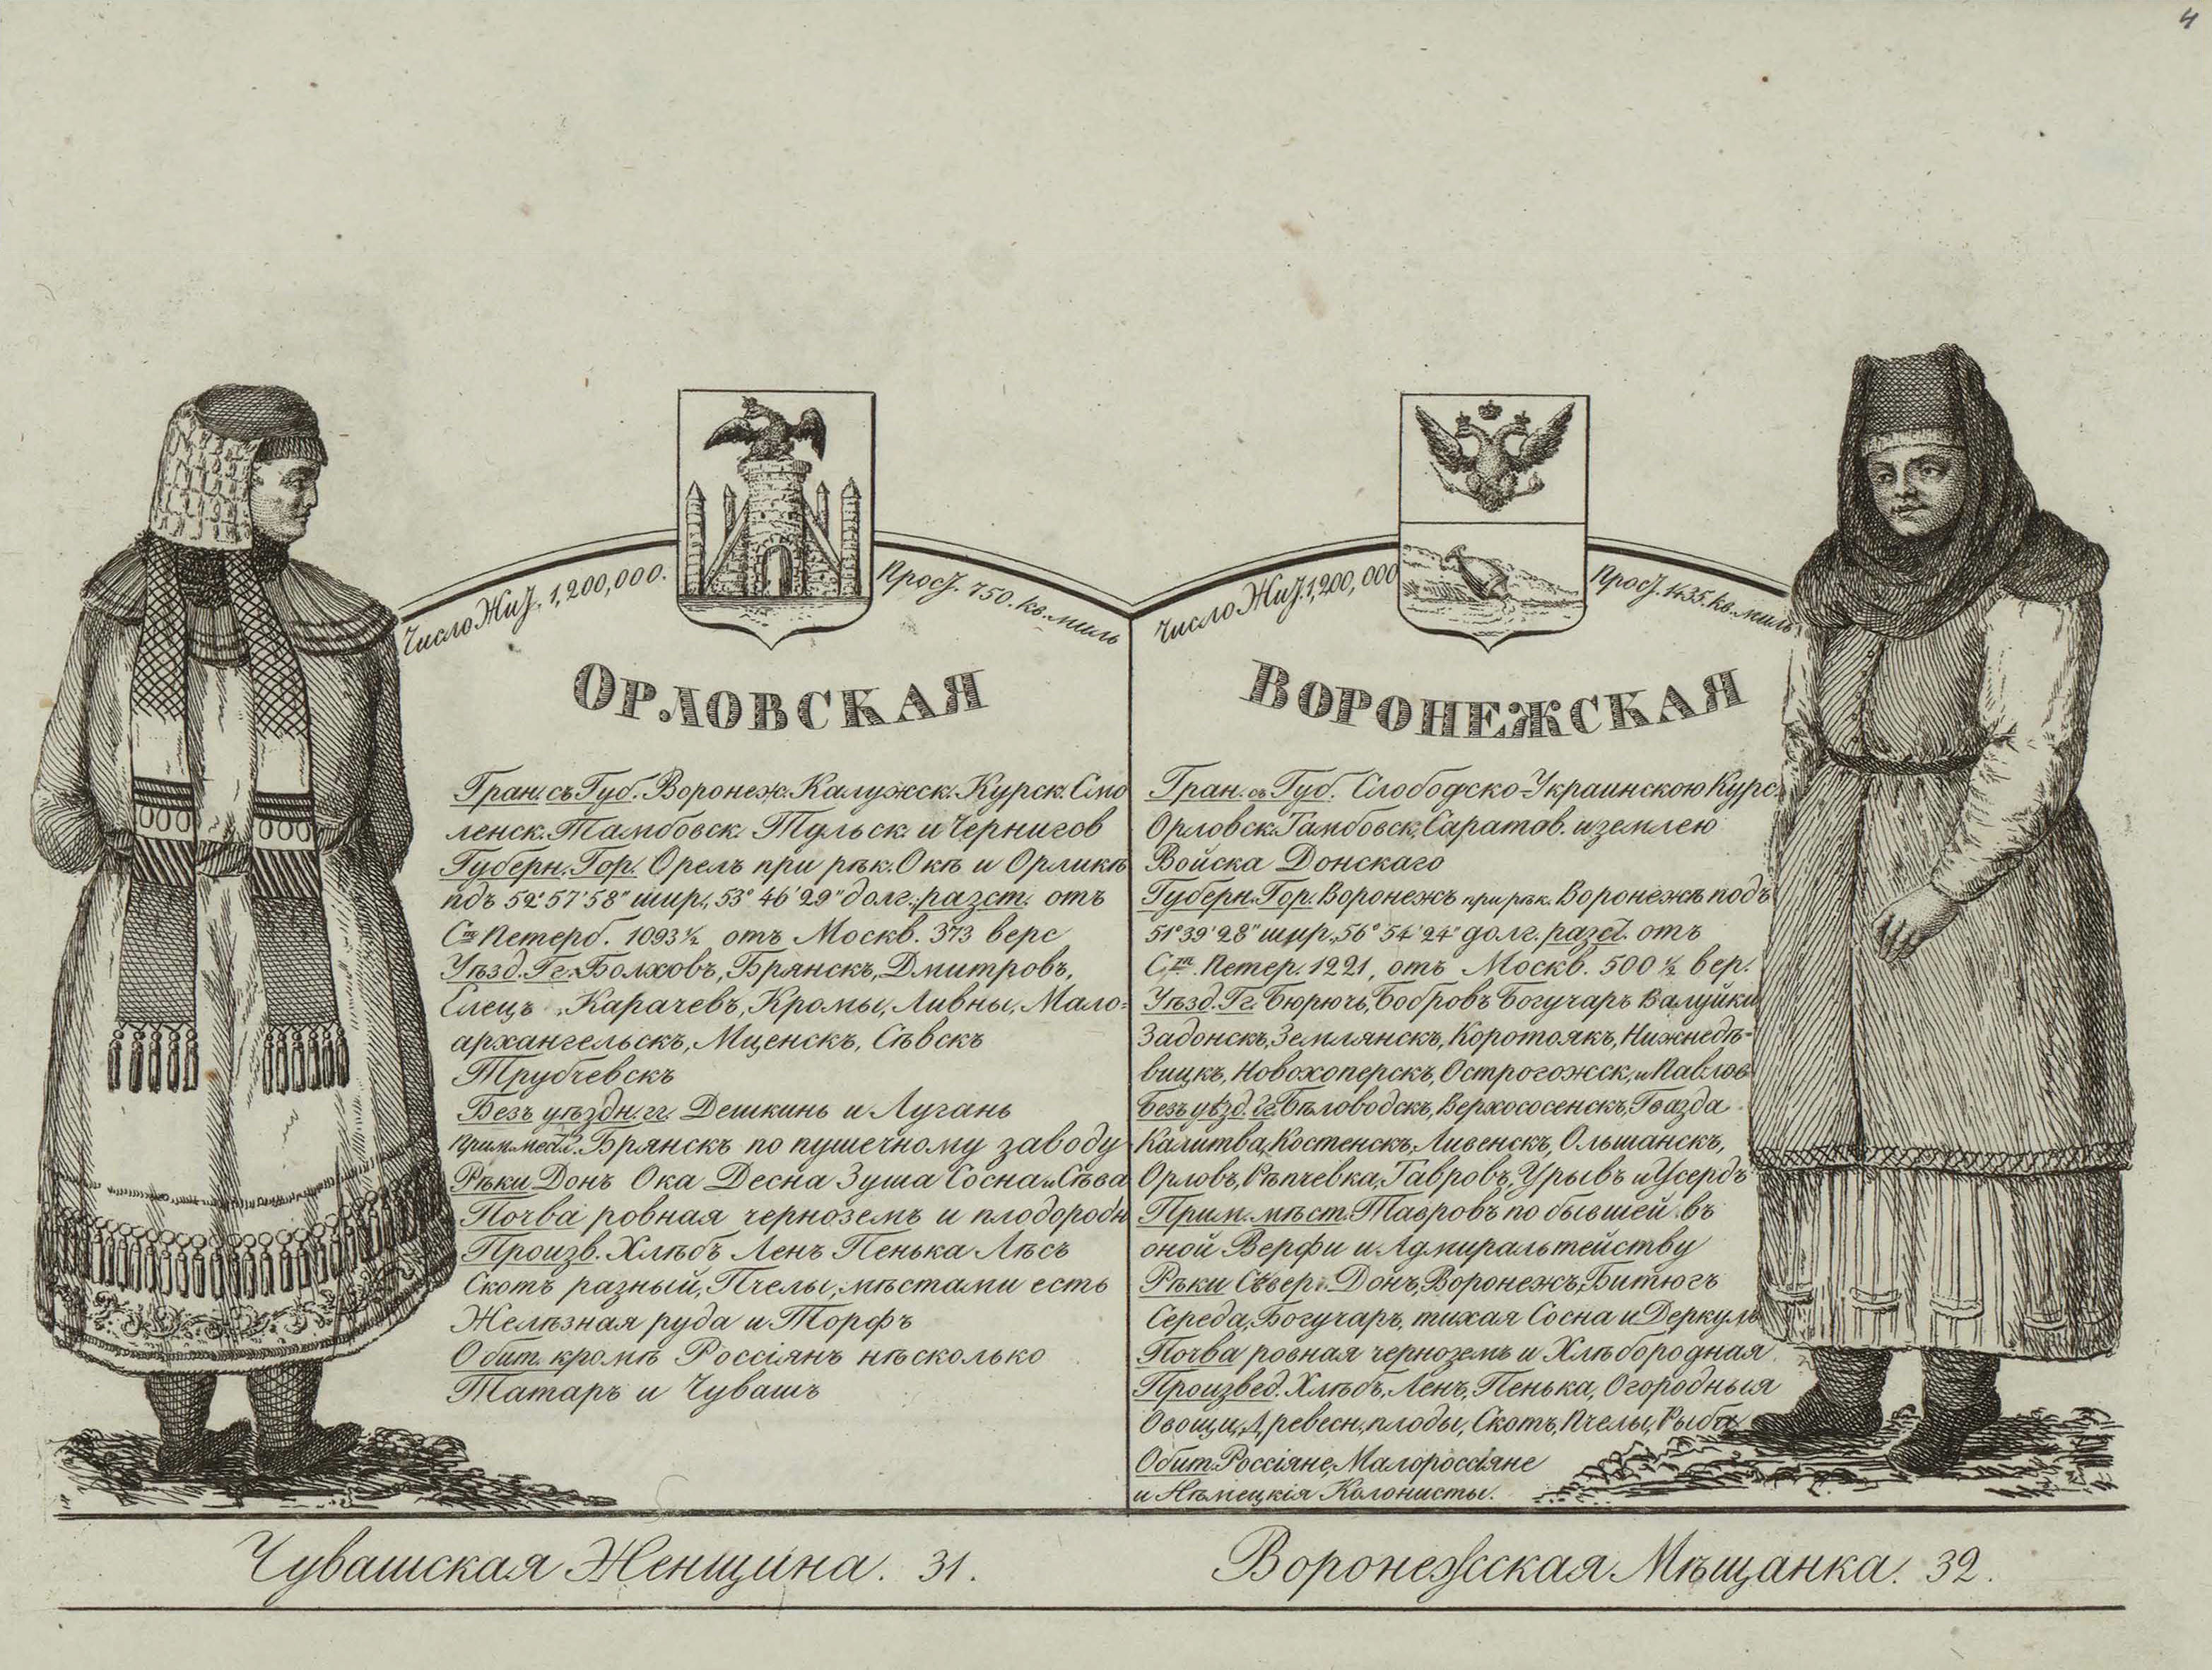 4
Число Жит. 1,200,000.
Прост. 750. кв. миль
ОРЛОВСКАЯ
Гран. съ Губ. Воронеж. Калужск. Курск. Смо
ленск. Тамбовск. Тульск. и Чернигов
Губерн. Гор. Орелъ при рѣк. Окѣ и Орликѣ
подъ 52°57'58" шир., 53°46'29" долг., разст. отъ
Ст Петерб. 1093½ отъ Москв. 373 верс
Уѣзд. Гг. Болховъ, Брянскъ, Дмитровъ,
Елецъ, Карачевъ, Кромы, Ливны, Мало-
архангельскъ, Мценскъ, Сѣвскъ
Трубчевскъ
Безъ уѣздн. гг. Дешкинь и Лугань
Прим. мест. Брянскъ по пушечному заводу
Рѣки Донъ Ока Десна Зуша Сосна и Сѣва
Почва ровная черноземъ и плодородн
Произв. Хлѣбъ Ленъ Пенька Лѣсъ
Скотъ разный, Пчелы, мѣстами есть
Желѣзная руда и Торфъ
Обит. кромѣ Россіянъ нѣсколько
Татаръ и Чувашъ
Число Жит. 1,200,000
Прост. 1435. кв. миль
ВОРОНЕЖСКАЯ
Гран. съ Губ. Слободско-Украинскою Курс.
Орловск. Тамбовск, Саратов. и землею
Войска Донскаго
Губерн. Гор. Воронежъ при рѣк. Воронежѣ подъ
51°39'28" шир., 56°54'24" долг. разст. отъ
Ст. Петер. 1221, отъ Москв. 500½ вер.
Уѣзд. Гг. Бюрючь, Бобровъ Богучаръ Валуйки
Задонскъ, Землянскъ, Коротоякъ, Нижнедѣ-
вицкъ, Новохоперскъ, Острогожск, и Павлов
Безъ уѣзд. Гг. Бѣловодскъ, Верхососенскъ, Гвазда
Калитва, Костенскъ, Ливенскъ, Ольшанскъ,
Орловъ, Рѣпчевка, Тавровъ, Урывъ и Усердъ
Прим. мѣст. Тавровъ по бывшей въ
оной Верфи и Адмиральтейству
Рѣки Сѣвер. Донъ, Воронежъ, Битюгъ
Середа, Богучаръ, тихая Сосна и Деркуль
Почва ровная черноземъ и Хлѣбородная
Произвед. Хлѣбъ, Ленъ, Пенька, Огородныя
Овощи, Древесн. плоды, Скотъ, Пчелы, Рыба
Обит. Россіяне, Малороссіяне
и Нѣмецкія Колонисты.
Чувашская Женщина. 31.
Воронежская Мѣщанка. 32.